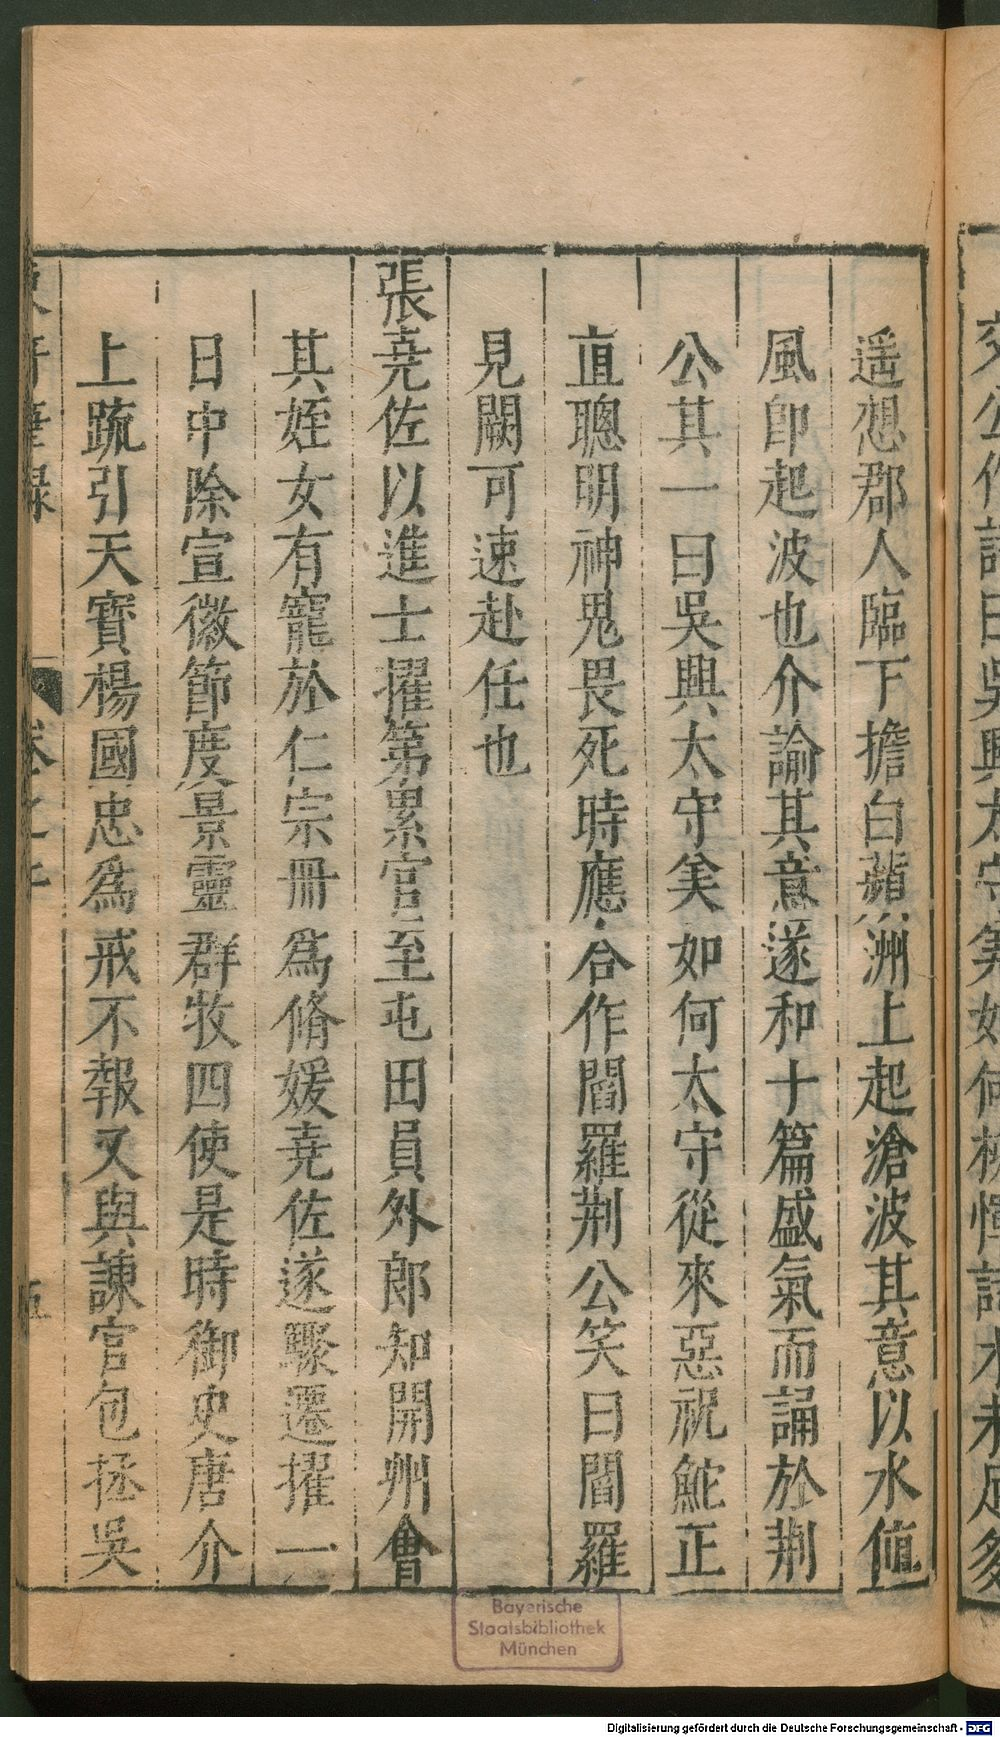 遥想郡人臨下擔白蘋洲上起滄波其意以水值
風卽起波也介諭其意遂和十篇盛氣而誦於荆
公其一曰吳興太守美如何太守從來惡祝鮀正
直聰明神鬼畏死時應合作閻羅荆公笑曰閻羅
見闕可速赴任也
張堯佐以進士擢第累官至屯田員外郎知開州會
其姪女有寵於仁宗冊爲脩媛堯佐遂驟遷擢一
日中除宣徽節度景靈群牧四使是時御史唐介
上䟽引天寶楊國忠爲戒不報又與諫官包拯吳
Bayerische
Staatsbibliothek
München
Digitalisierung gefördert durch die Deutsche Forschungsgemeinschaft - DFG